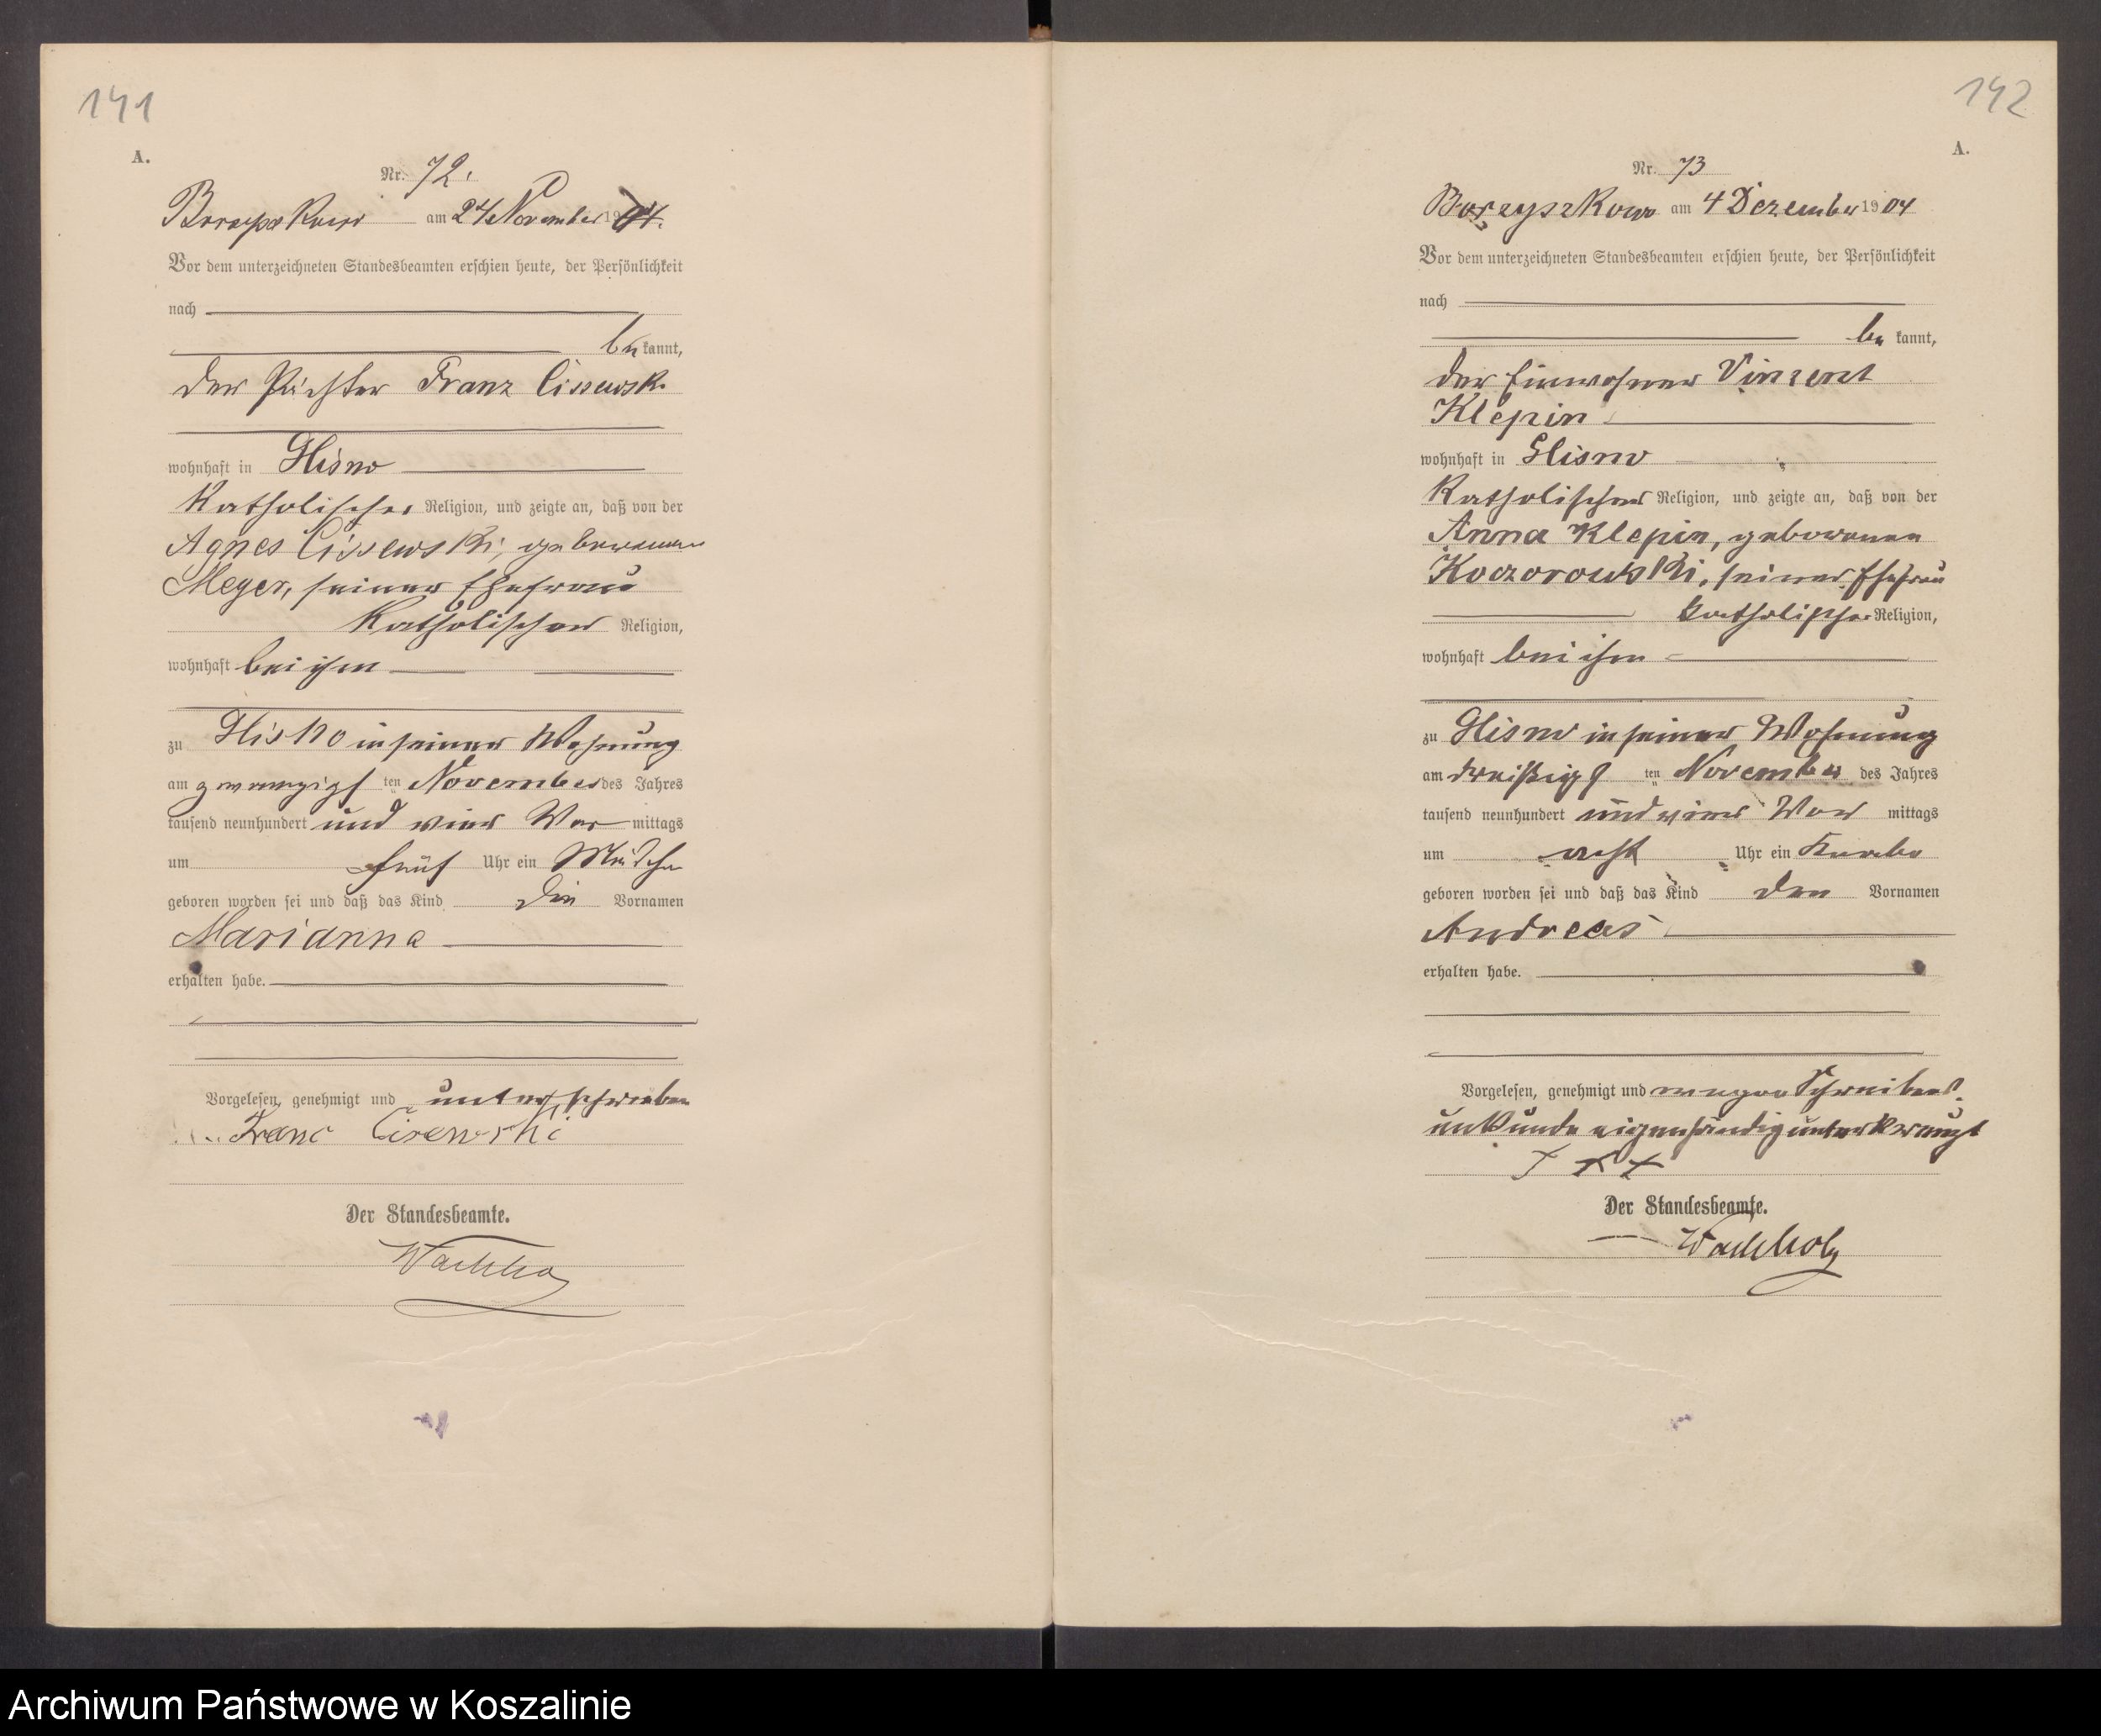 141
A.
Nr. 72.
Borzyszkowo am 24 November 1904.
Vor dem unterzeichneten Standesbeamten erschien heute, der Persönlichkeit
nach
be kannt,
der Pächter Franz Cissewski
wohnhaft in Glisno
katholischer Religion, und zeigte an, daß von der
Agnes Cissewski, geborenen
Meyer, seiner Ehefrau
katholischer Religion,
wohnhaft bei ihm
zu Glisno in seiner Wohnung
am zwanzigs ten November des Jahres
tausend neunhundert und vier Vor mittags
um fünf Uhr ein Mädchen
geboren worden sei und daß das Kind die Vornamen
Marianna
erhalten habe.
Vorgelesen, genehmigt und unterschrieben
Franc Cisewski
Der Standesbeamte.
Wachholz
142
A.
Nr. 73
Borzyszkowo am 4 Dezember 1904
Vor dem unterzeichneten Standesbeamten erschien heute, der Persönlichkeit
nach
be kannt,
der Einwohner Vinzent
Klepin
wohnhaft in Glisno
katholischer Religion, und zeigte an, daß von der
Anna Klepin, geborenen
Koczorowski, seiner Ehefrau
katholischer Religion,
wohnhaft bei ihm
zu Glisno in seiner Wohnung
am dreißigs ten November des Jahres
tausend neunhundert und vier Vor mittags
um acht Uhr ein Knabe
geboren worden sei und daß das Kind den Vornamen
Andreas
erhalten habe.
Vorgelesen, genehmigt und wegen Schreibens
unkunde eigenhändig unterkreuzt
+ + +
Der Standesbeamte.
Wachholz
Archiwum Państwowe w Koszalinie